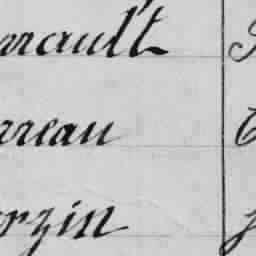 rrault
rreau
rzin